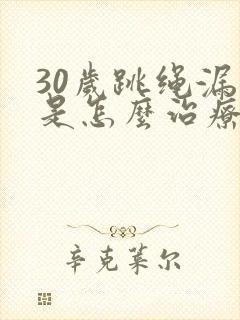 30歲跳绳漏
是怎麼治療
辛克莱尔